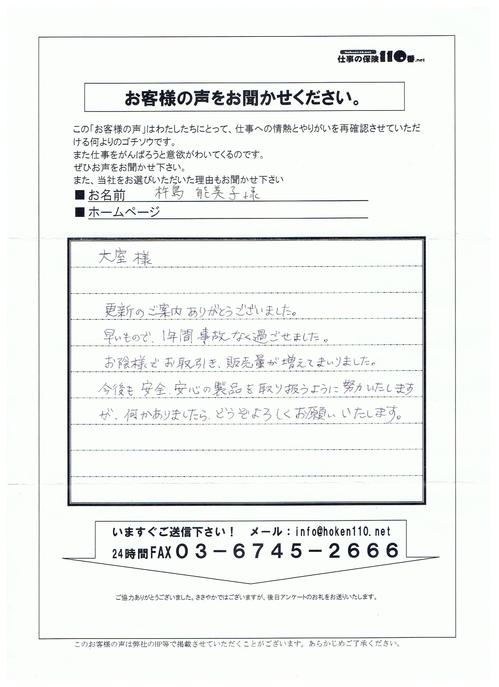 仕事の保険110番.net
お客様の声をお聞かせください。
この「お客様の声」はわたしたちにとって、仕事への情熱とやりがいを再確認させていただ
ける何よりのゴチソウです。
また仕事をがんばろうと意欲がわいてくるのです。
ぜひお声をお聞かせ下さい。
また、当社をお選びいただいた理由もお聞かせ下さい
■お名前 杵島 能美子様
■ホームページ
大室様
更新のご案内ありがとうございました。
早いもので、1年間事故なく過ごせました。
お陰様でお取引き、販売量が増えてまいりました。
今後も安全、安心の製品を取り扱うように努力いたします
が、何かありましたら、どうぞよろしくお願いいたします。
いますぐご送信下さい！ メール：info@hoken110.net
24時間FAX03－6745－2666
ご協力ありがとうございました。ささやかではございますが、後日アンケートのお礼をお送りいたします。
このお客様の声は弊社のHP等で掲載させていただくことがございます。あらかじめご了承ください。